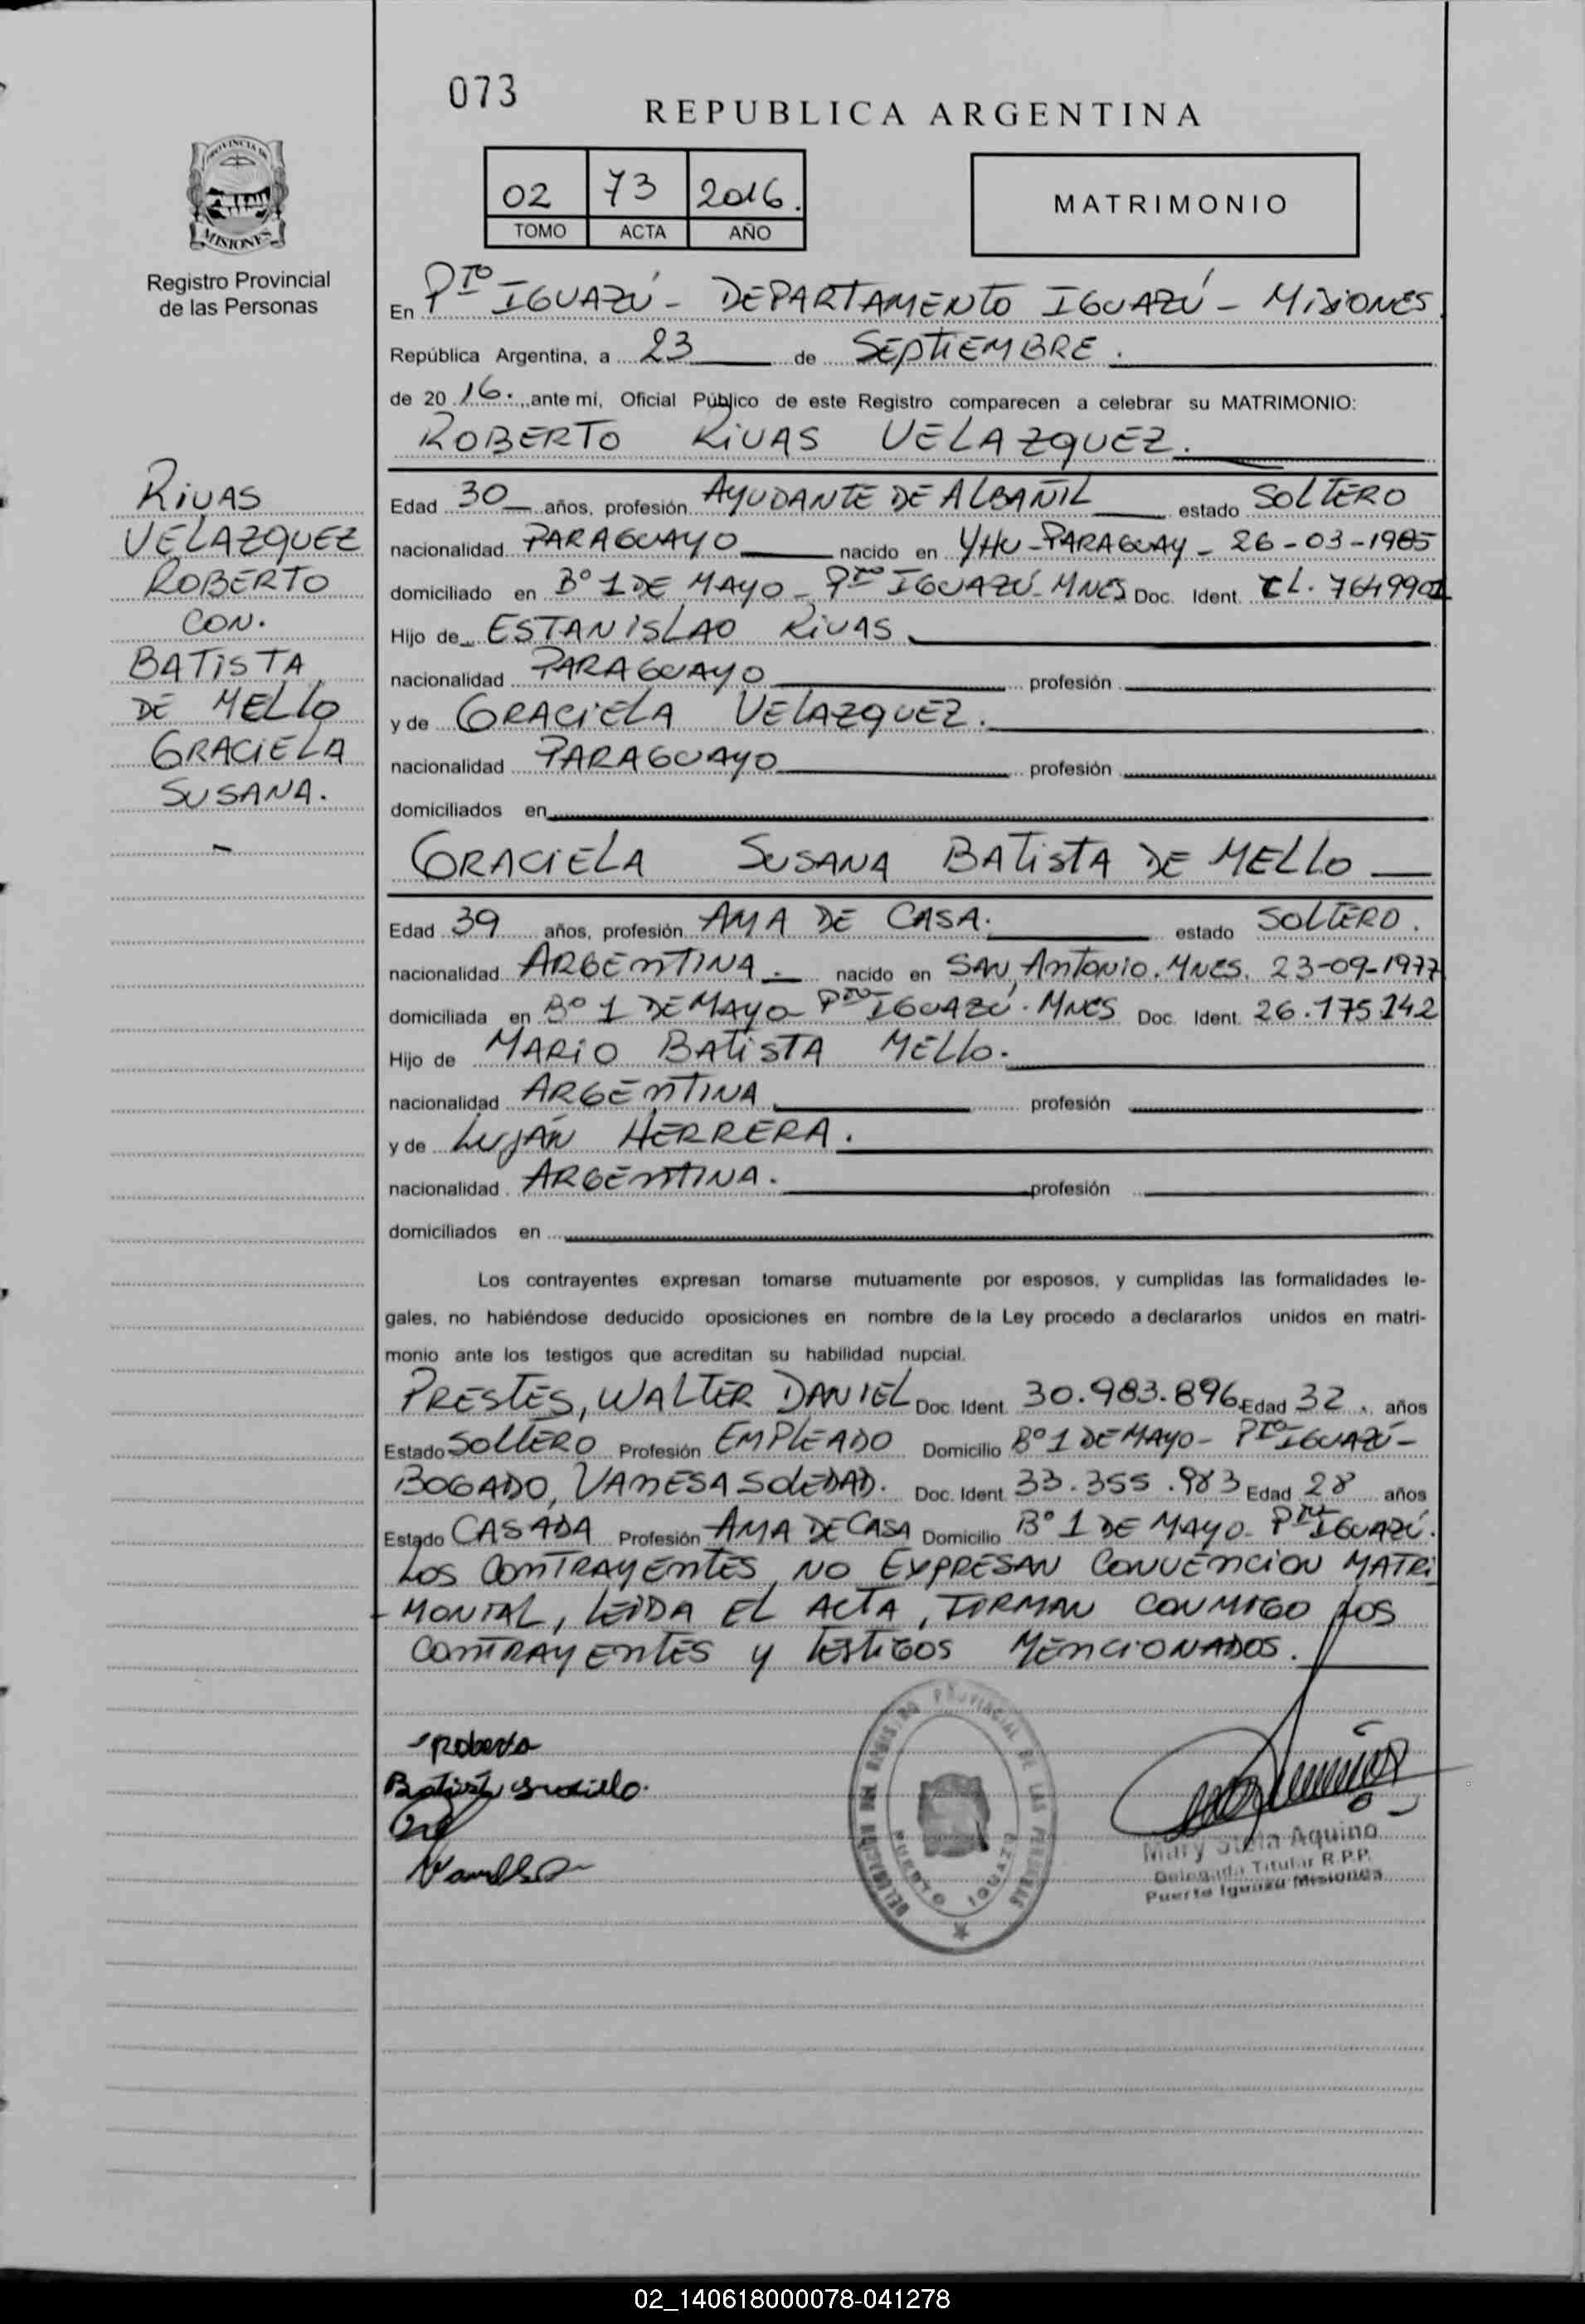 073
REPUBLICA ARGENTINA
PROVINCIA DE
MISIONES
Registro Provincial
de las Personas
02 73 2016.
TOMO ACTA AÑO
MATRIMONIO
En PTO IGUAZÚ - DEPARTAMENTO IGUAZÚ - MISIONES
República Argentina, a 23 de SEPTIEMBRE.
de 20 16. ante mí, Oficial Público de este Registro comparecen a celebrar su MATRIMONIO:
ROBERTO RIVAS VELAZQUEZ.
RIVAS
VELAZQUEZ
ROBERTO
CON.
BATISTA
DE MELLO
GRACIELA
SUSANA.
-
Edad 30 años, profesión AYUDANTE DE ALBAÑIL estado SOLTERO
nacionalidad PARAGUAYO nacido en YHU-PARAGUAY - 26-03-1985
domiciliado en Bº 1 DE MAYO - PTO IGUAZÚ - MNES Doc. Ident. CL. 7649901
Hijo de ESTANISLAO RIVAS
nacionalidad PARAGUAYO profesión
y de GRACIELA VELAZQUEZ.
nacionalidad PARAGUAYO profesión
domiciliados en
GRACIELA SUSANA BATISTA DE MELLO
Edad 39 años, profesión AMA DE CASA. estado SOLTERO.
nacionalidad ARGENTINA. nacido en SAN ANTONIO. MNES. 23-09-1977
domiciliada en Bº 1 DE MAYO - PTO IGUAZÚ. MNES Doc. Ident. 26.175.142
Hijo de MARIO BATISTA MELLO.
nacionalidad ARGENTINA profesión
y de LUJÁN HERRERA.
nacionalidad ARGENTINA. profesión
domiciliados en
Los contrayentes expresan tomarse mutuamente por esposos, y cumplidas las formalidades le-
gales, no habiéndose deducido oposiciones en nombre de la Ley procedo a declararlos unidos en matri-
monio ante los testigos que acreditan su habilidad nupcial.
PRESTES, WALTER DANIEL Doc. Ident. 30.983.896 Edad 32 años
Estado SOLTERO Profesión EMPLEADO Domicilio Bº 1 DE MAYO - PTO IGUAZÚ -
BOGADO, VANESA SOLEDAD. Doc. Ident. 33.355.983 Edad 28 años
Estado CASADA Profesión AMA DE CASA Domicilio Bº 1 DE MAYO - PTO IGUAZÚ.
LOS CONTRAYENTES, NO EXPRESAN CONVENCION MATRI
- MONIAL, LEIDA EL ACTA, FIRMAN CONMIGO LOS
CONTRAYENTES Y TESTIGOS MENCIONADOS.
Roberto
DELEGACION DEL REGISTRO PROVINCIAL DE LAS PERSONAS
PUERTO IGUAZU
Mary Stela Aquino
Delegada Titular R.P.P.
Puerto Iguazu Misiones
02_140618000078-041278